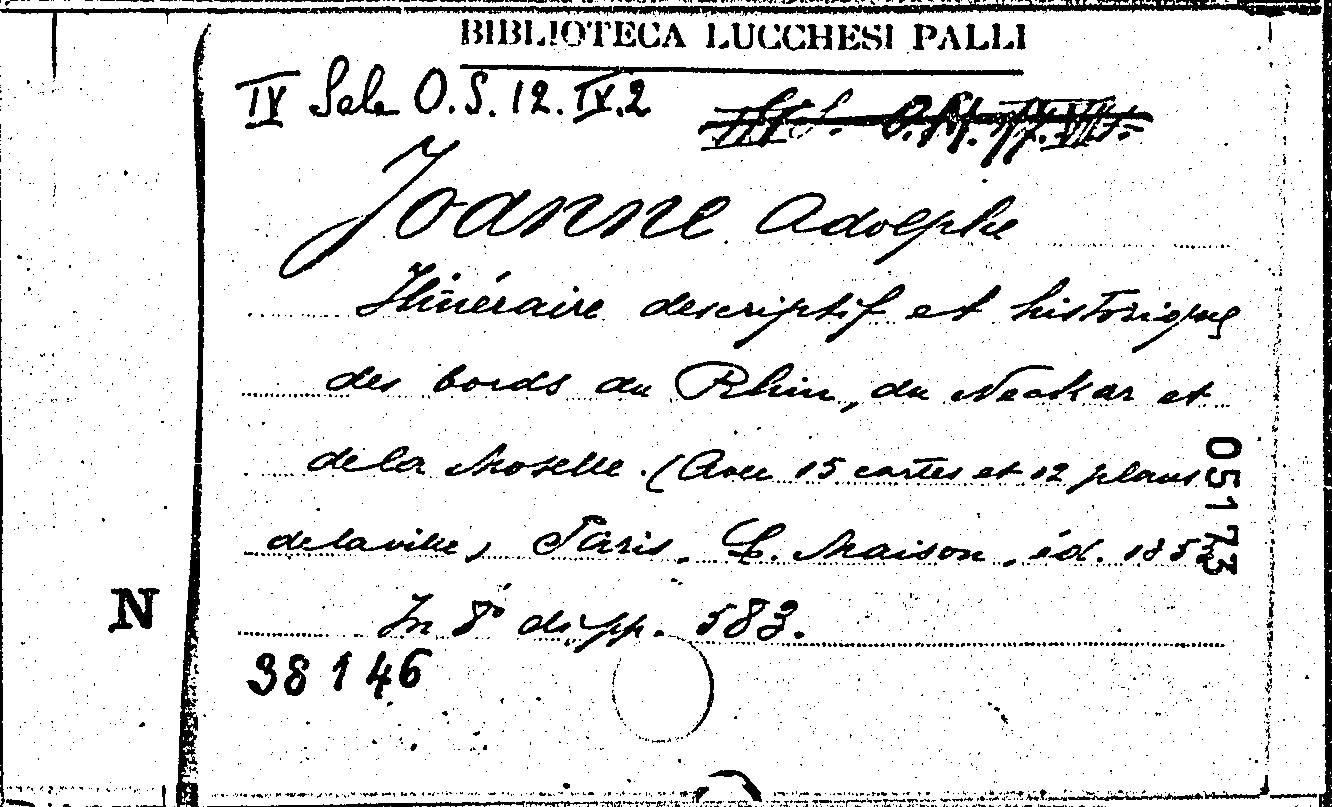 BIBLIOTECA LUCCHESI PALLI
IV Sala O.S. 12. IV.2
Joanne Adolphe
Itinéraire descriptif et historique
des bords du Rhin, du Neckar et
de la Moselle. (Avec 15 cartes et 12 plans
de la ville) Paris, L. Maison, éd. 185
05173
In 8° di pp. 583.
N
38146